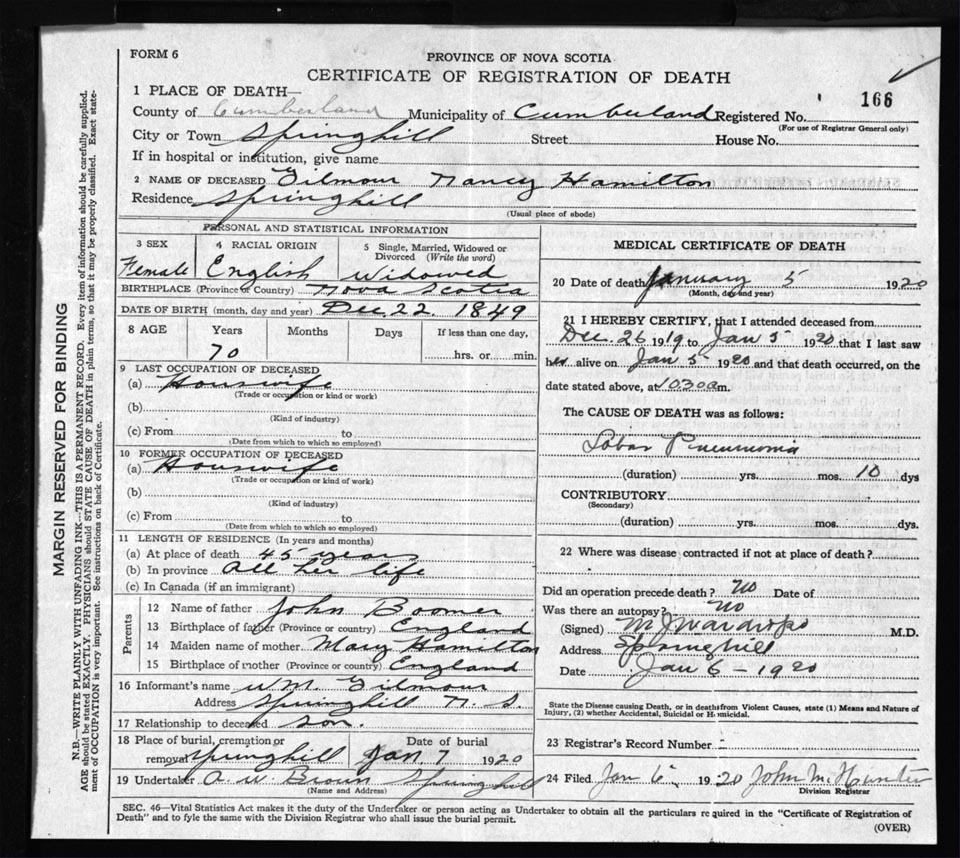 FORM 6
PROVINCE OF NOVA SCOTIA
CERTIFICATE OF REGISTRATION OF DEATH
166
1 PLACE OF DEATH—
County of Cumberland Municipality of Cumberland Registered No.
(For use of Registrar General only)
City or Town Springhill Street House No.
If in hospital or institution, give name
2 NAME OF DECEASED Gilmour Nancy Hamilton
Residence Springhill
(Usual place of abode)
PERSONAL AND STATISTICAL INFORMATION
3 SEX 4 RACIAL ORIGIN 5 Single, Married, Widowed or Divorced (Write the word)
Female English Widowed
BIRTHPLACE (Province or Country) Nova Scotia
DATE OF BIRTH (month, day and year) Dec. 22. 1849
8 AGE Years Months Days If less than one day,
70 hrs. or min.
9 LAST OCCUPATION OF DECEASED
(a) Houswife
(Trade or occupation or kind or work)
(b)
(Kind of industry)
(c) From to
(Date from which to which so employed)
10 FORMER OCCUPATION OF DECEASED
(a) Houswife
(Trade or occupation or kind of work)
(b)
(Kind of industry)
(c) From to
(Date from which to which so employed)
11 LENGTH OF RESIDENCE (In years and months)
(a) At place of death 45 years
(b) In province all her life
(c) In Canada (if an immigrant)
Parents
12 Name of father John Boomer
13 Birthplace of father (Province or country) England
14 Maiden name of mother Mary Hamilton
15 Birthplace of mother (Province or country) England
16 Informant's name Wm. Gilmour
Address Springhill N. S.
17 Relationship to deceased son.
18 Place of burial, cremation or removal Springhill Date of burial Jan. 7 1920
19 Undertaker A. W. Brown Springhill
(Name and Address)
MEDICAL CERTIFICATE OF DEATH
20 Date of death January 5 1920
(Month, day and year)
21 I HEREBY CERTIFY, that I attended deceased from
Dec. 26 1919 to Jan 5 1920 that I last saw
her alive on Jan 5 1920 and that death occurred, on the
date stated above, at 10.30 a m.
The CAUSE OF DEATH was as follows:
Lobar Pneumonia
(duration) yrs. mos. 10 dys
CONTRIBUTORY
(Secondary)
(duration) yrs. mos. dys.
22 Where was disease contracted if not at place of death?
Did an operation precede death? No Date of
Was there an autopsy? No
(Signed) M.D.
Address Springhill
Date Jan 6 – 1920
State the Disease causing Death, or in deaths from Violent Causes, state (1) Means and Nature of
Injury, (2) whether Accidental, Suicidal or Homicidal.
23 Registrar's Record Number
24 Filed Jan 6 1920 John M Hunter
Division Registrar
SEC. 46—Vital Statistics Act makes it the duty of the Undertaker or person acting as Undertaker to obtain all the particulars required in the "Certificate of Registration of
Death" and to fyle the same with the Division Registrar who shall issue the burial permit.
(OVER)
MARGIN RESERVED FOR BINDING
N.B.—WRITE PLAINLY WITH UNFADING INK—THIS IS A PERMANENT RECORD. Every item of information should be carefully supplied.
AGE should be stated EXACTLY. PHYSICIANS should STATE CAUSE OF DEATH in plain terms, so that it may be properly classified. Exact state-
ment of OCCUPATION is very important. See instructions on back of Certificate.